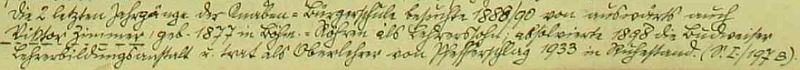 Die 2 letzten Jahrgänge der Knaben-Bürgerschule besuchte 1888/90 von auswärts auch
Viktor Zimmer, geb. 1877 in Böhm.-Röhren als Lehrerssohn; absolvierte 1898 die Budweiser
Lehrerbildungsanstalt u. trat als Oberlehrer von Pfefferschlag 1933 in Ruhestand. (S. I./197 3).